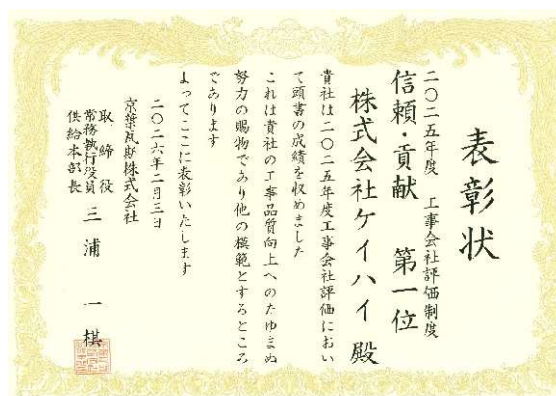 表彰状
二〇二五年度 工事会社評価制度
信頼・貢献 第一位
株式会社ケイハイ 殿
貴社は二〇二五年度工事会社評価におい
て頭書の成績を収めました
これは貴社の工事品質向上へのたゆまぬ
努力の賜物であり他の模範とするところ
であります
よってここに表彰いたします
二〇二六年二月三日
京葉瓦斯株式会社
取締役
常務執行役員
供給本部長
三浦 一棋